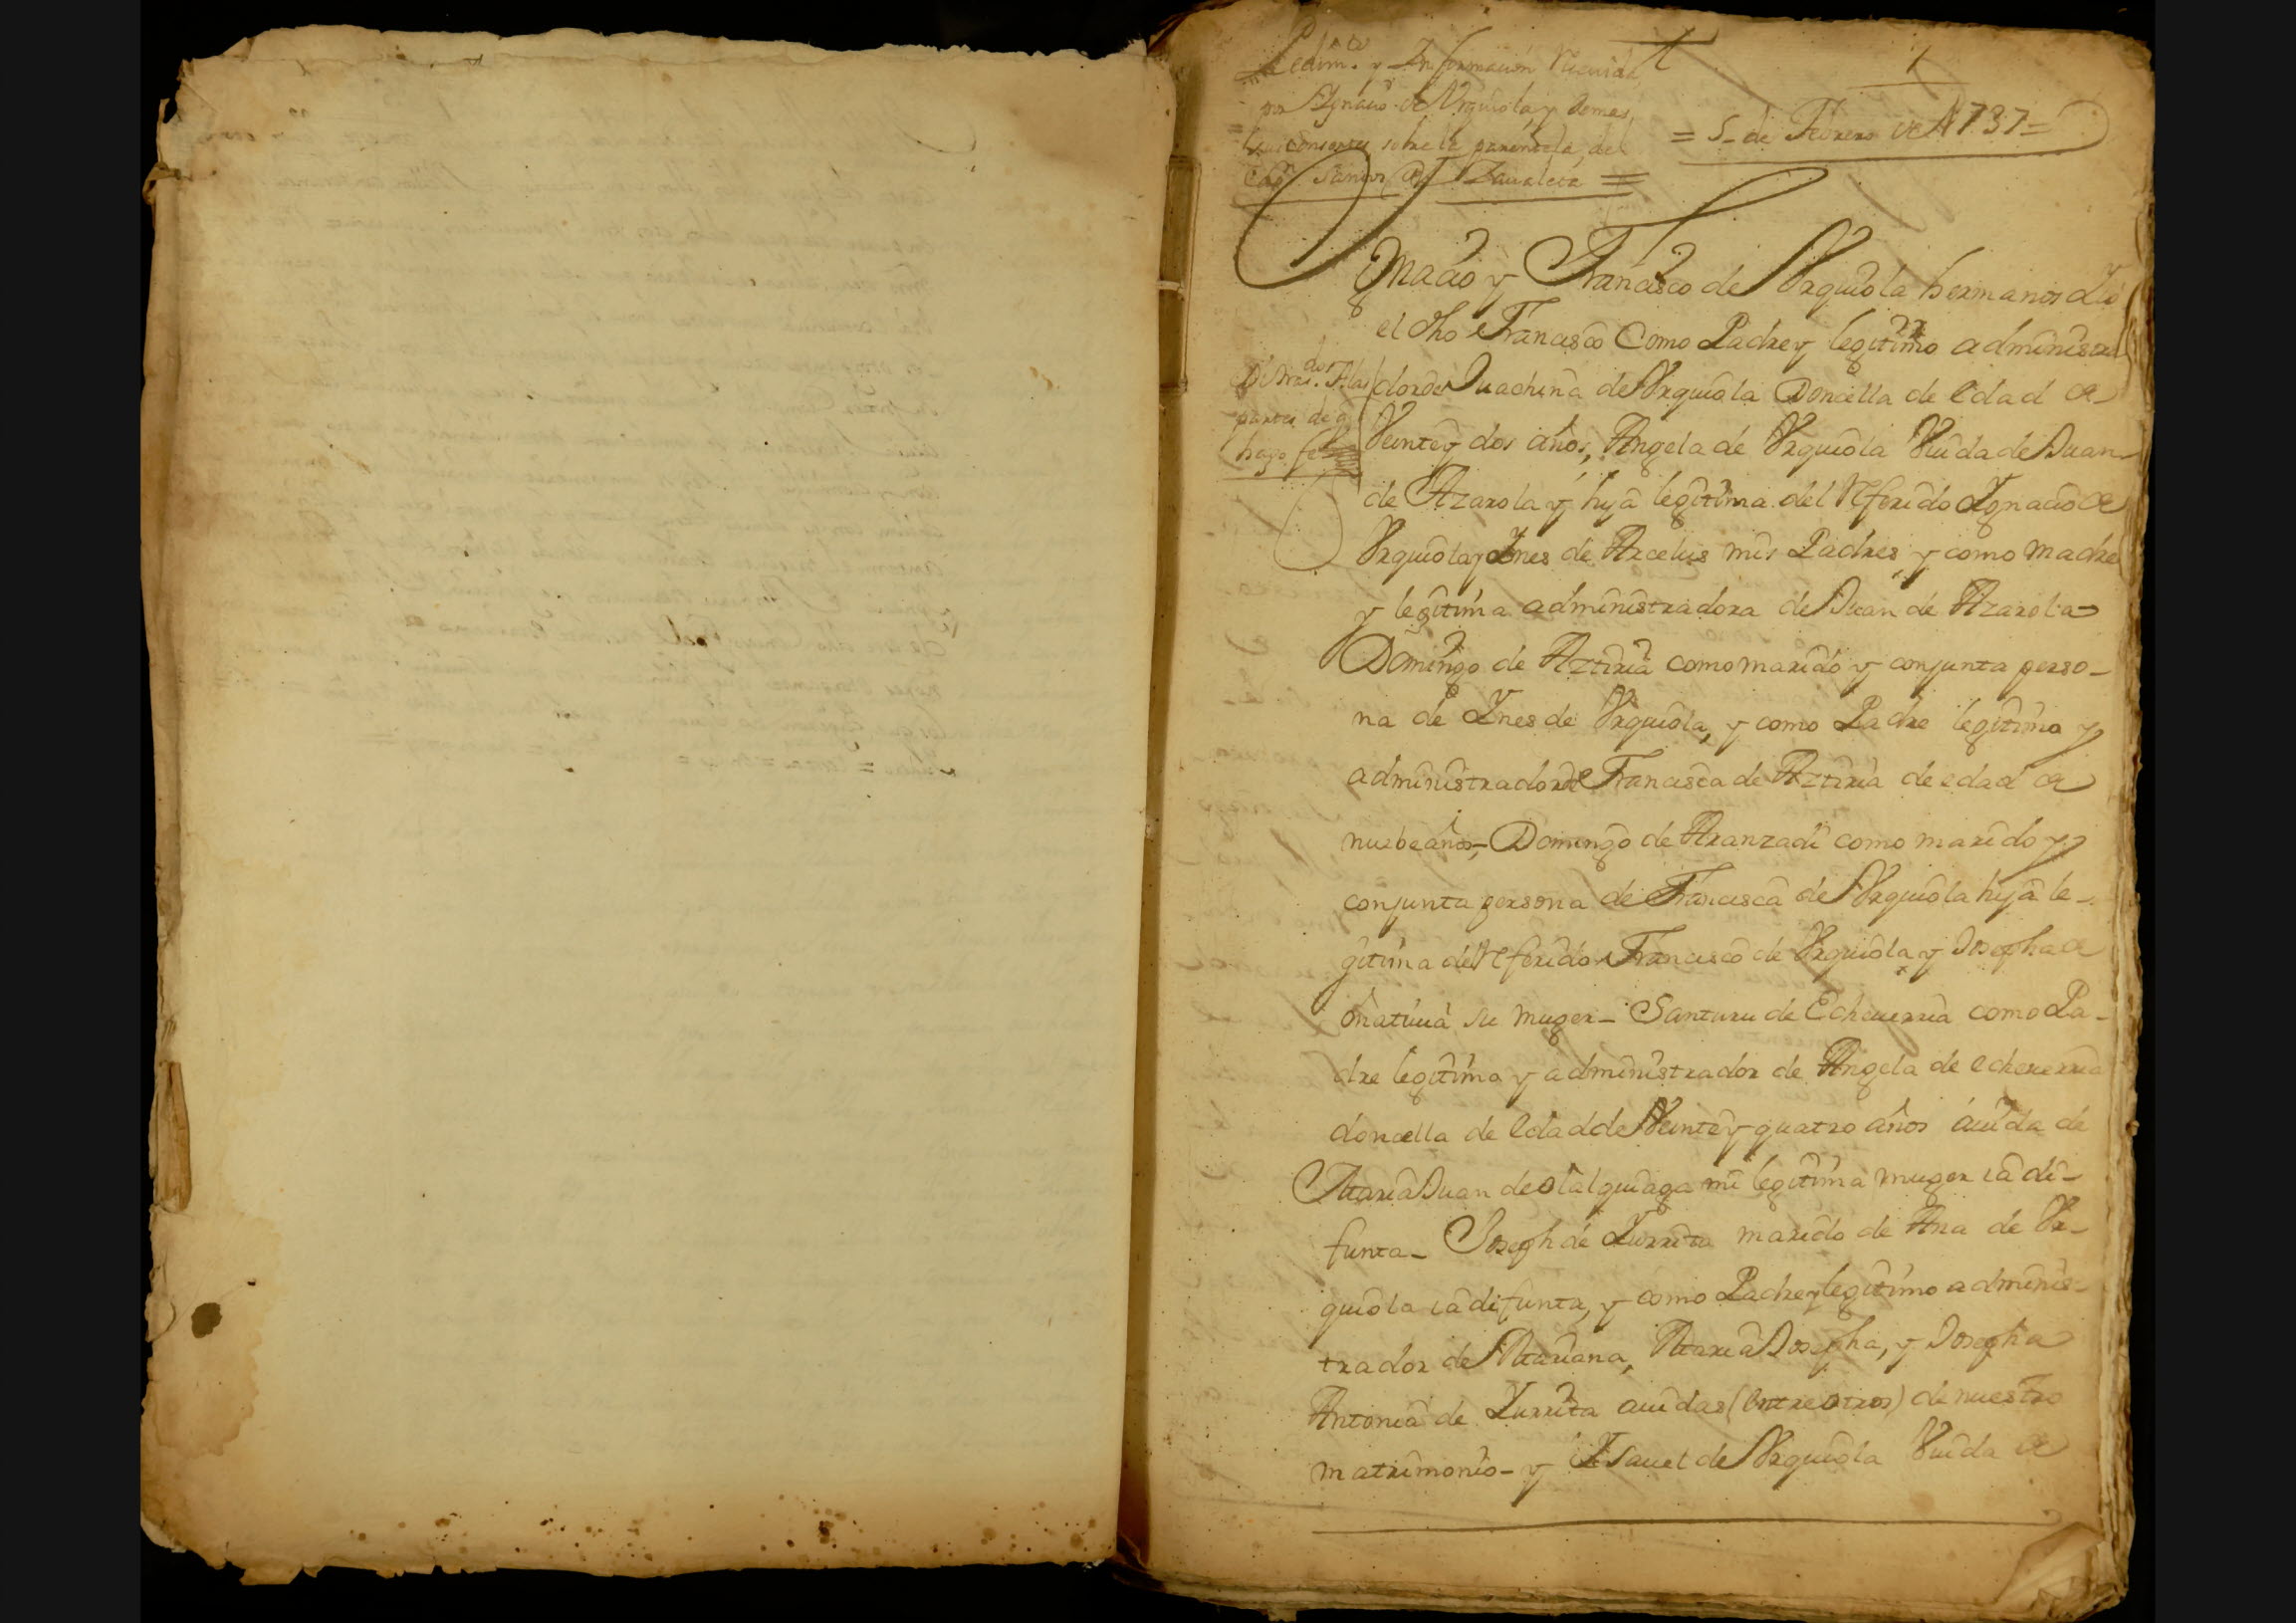 Pedim.to y Informacion
por Ygnacio de Vrquiola, y demas
sus consortes sobre la parentela del
Cap.n Santos de Zaualeta =
1
= 5 de Febrero de 1737 =
Ygnacio y Francisco de Vrquiola hermanos
el dho Francisco Como Padre y legitimo administra
dor de Juachina de Vrquiola Doncella de edad de
Veinte y dos años, Angela de Vrquiola Viuda de Juan
de Azarola y hija legitima del Referido Ygnacio de
Vrquiola y Ynes de Arcelus mis Padres, y como madre
y legitima administradora de Juan de Azarola
Domingo de Aztiria como marido y conjunta perso-
na de Ynes de Vrquiola, y como Padre legitimo y
administrador de Francisca de Aztiria de edad de
nuebe años, Domingo de Aranzadi como marido y
conjunta persona de Francisca de Vrquiola hija le-
gitima del Referido Francisco de Vrquiola y Josepha de
su muger - Santuru de Echeuerria como Pa-
dre legitimo y administrador de Angela de echeuerria
doncella de edad de Veinte y quatro años auida de
Maria Juan de Olalquiaga mi legitima muger ia di-
funta - Joseph de Yurrita marido de Ana de Vr-
quiola ia difunta, y como Padre y legitimo adminis-
trador de Mariana, Maria Josepha, y Josepha
Antonia de Yurrita auidas (entre otros) de nuestro
matrimonio - y Ysauel de Vrquiola Viuda de
partes de q
hago fe